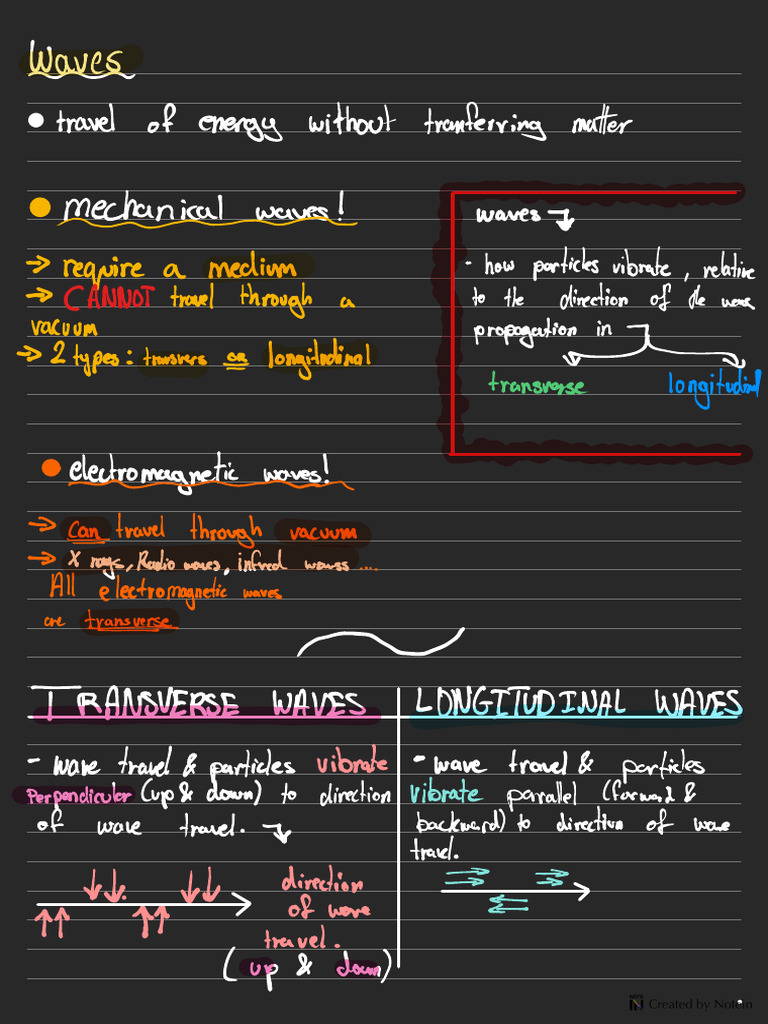 Waves
• travel of energy without tranferring matter
• mechanical waves!
→ require a medium
→ CANNOT travel through a
vacuum
→ 2 types: transvers or longitudinal
waves
- how particles vibrate, relative
to the direction of the wave
propagation in
transverse longitudinal
• electromagnetic waves!
→ Can travel through vacuum
→ X rays, Radio waves, infred waves ....
All electromagnetic waves
are transverse
TRANSVERSE WAVES
- wave travel & particles vibrate
Perpendicular (up & down) to direction
of wave travel.
direction
of wave
travel.
(up & down)
LONGITUDINAL WAVES
- wave travel & particles
vibrate parallel (forward &
backward) to direction of wave
travel.
Created by Notein